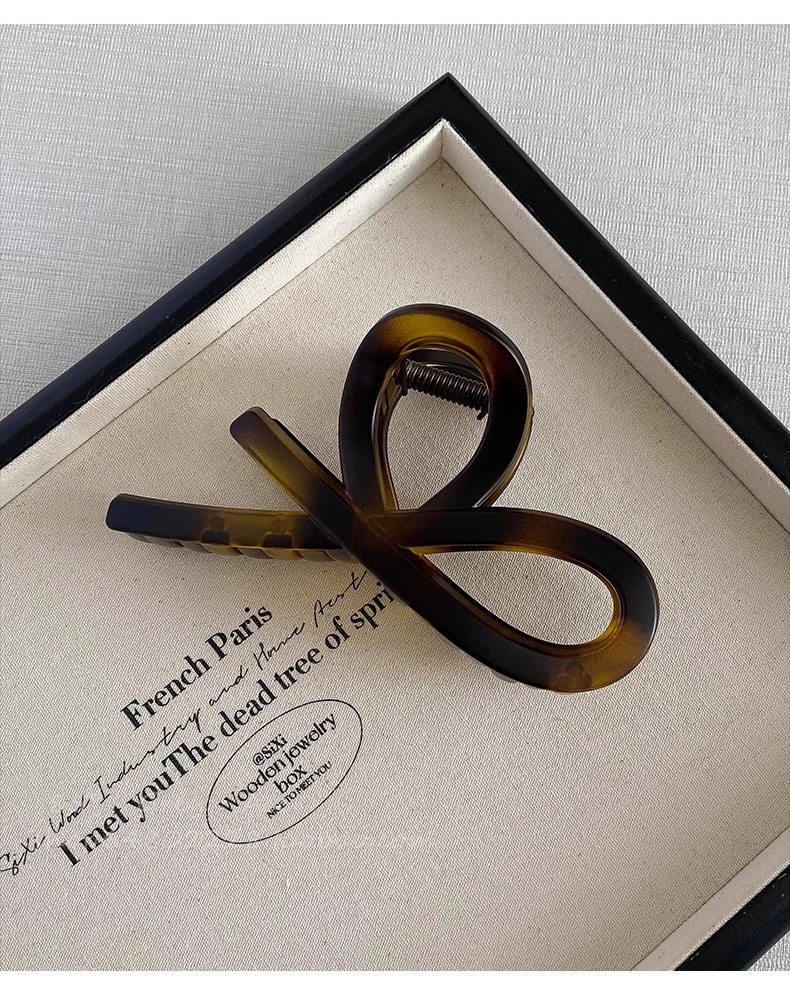 French Paris
SiXi Wood Industry and Home Aest
I met youThe dead tree of spri
@SiXi
Wooden jewelry
box
NICE TO MEET YOU